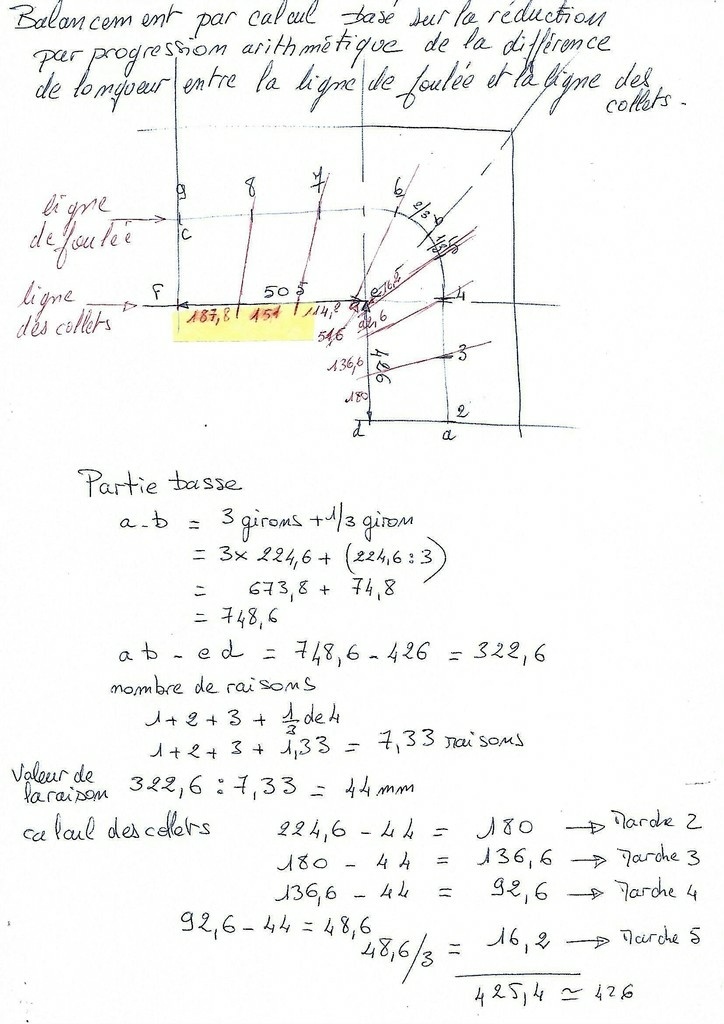 Balancement par calcul basé sur la réduction
par progression arithmétique de la différence
de longueur entre la ligne de foulée et la ligne des
collets.
9 8 7 6
2/3 b
ligne
de foulée
c
1/3 5
ligne
des collets
F
505
e
16,2
4
187,8 151 114,2
51,6
92,6
136,6
426
3
180
2
d a
Partie basse
a-b = 3 girons + 1/3 giron
= 3 x 224,6 + (224,6 : 3)
= 673,8 + 74,8
= 748,6
ab - ed = 748,6 - 426 = 322,6
nombre de raisons
1 + 2 + 3 + 1/3 de 4
1 + 2 + 3 + 1,33 = 7,33 raisons
Valeur de
la raison 322,6 : 7,33 = 44 mm
calcul des collets 224,6 - 44 = 180 → Marche 2
180 - 44 = 136,6 → Marche 3
136,6 - 44 = 92,6 → Marche 4
92,6 - 44 = 48,6
48,6/3 = 16,2 → Marche 5
425,4 ≃ 426